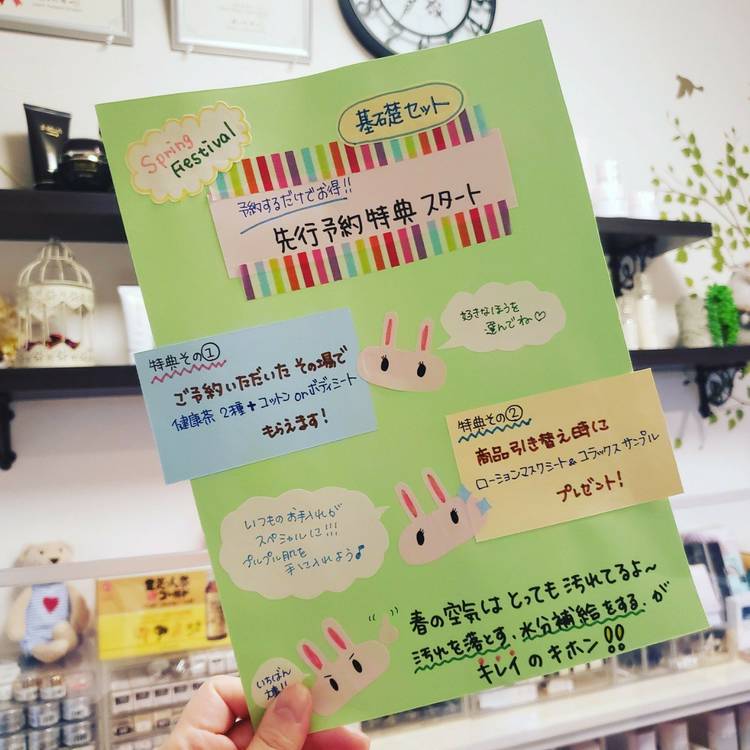 Spring
Festival
基礎セット
予約するだけでお得!!
先行予約特典 スタート
好きなほうを
選んでね♡
特典その①
ご予約いただいた その場で
健康茶 2種+コットン orボディミート
もらえます!
特典その②
商品引き替え時に
ローションマスクシート&コラックス サンプル
プレゼント!
いつものお手入れが
スペシャルに!!!
プルプル肌を
手に入れよう♪
春の空気は とっても 汚れてるよ〜
汚れを落とす、水分補給をする、が
キレイ の キホン!!
いちばん
大事!!